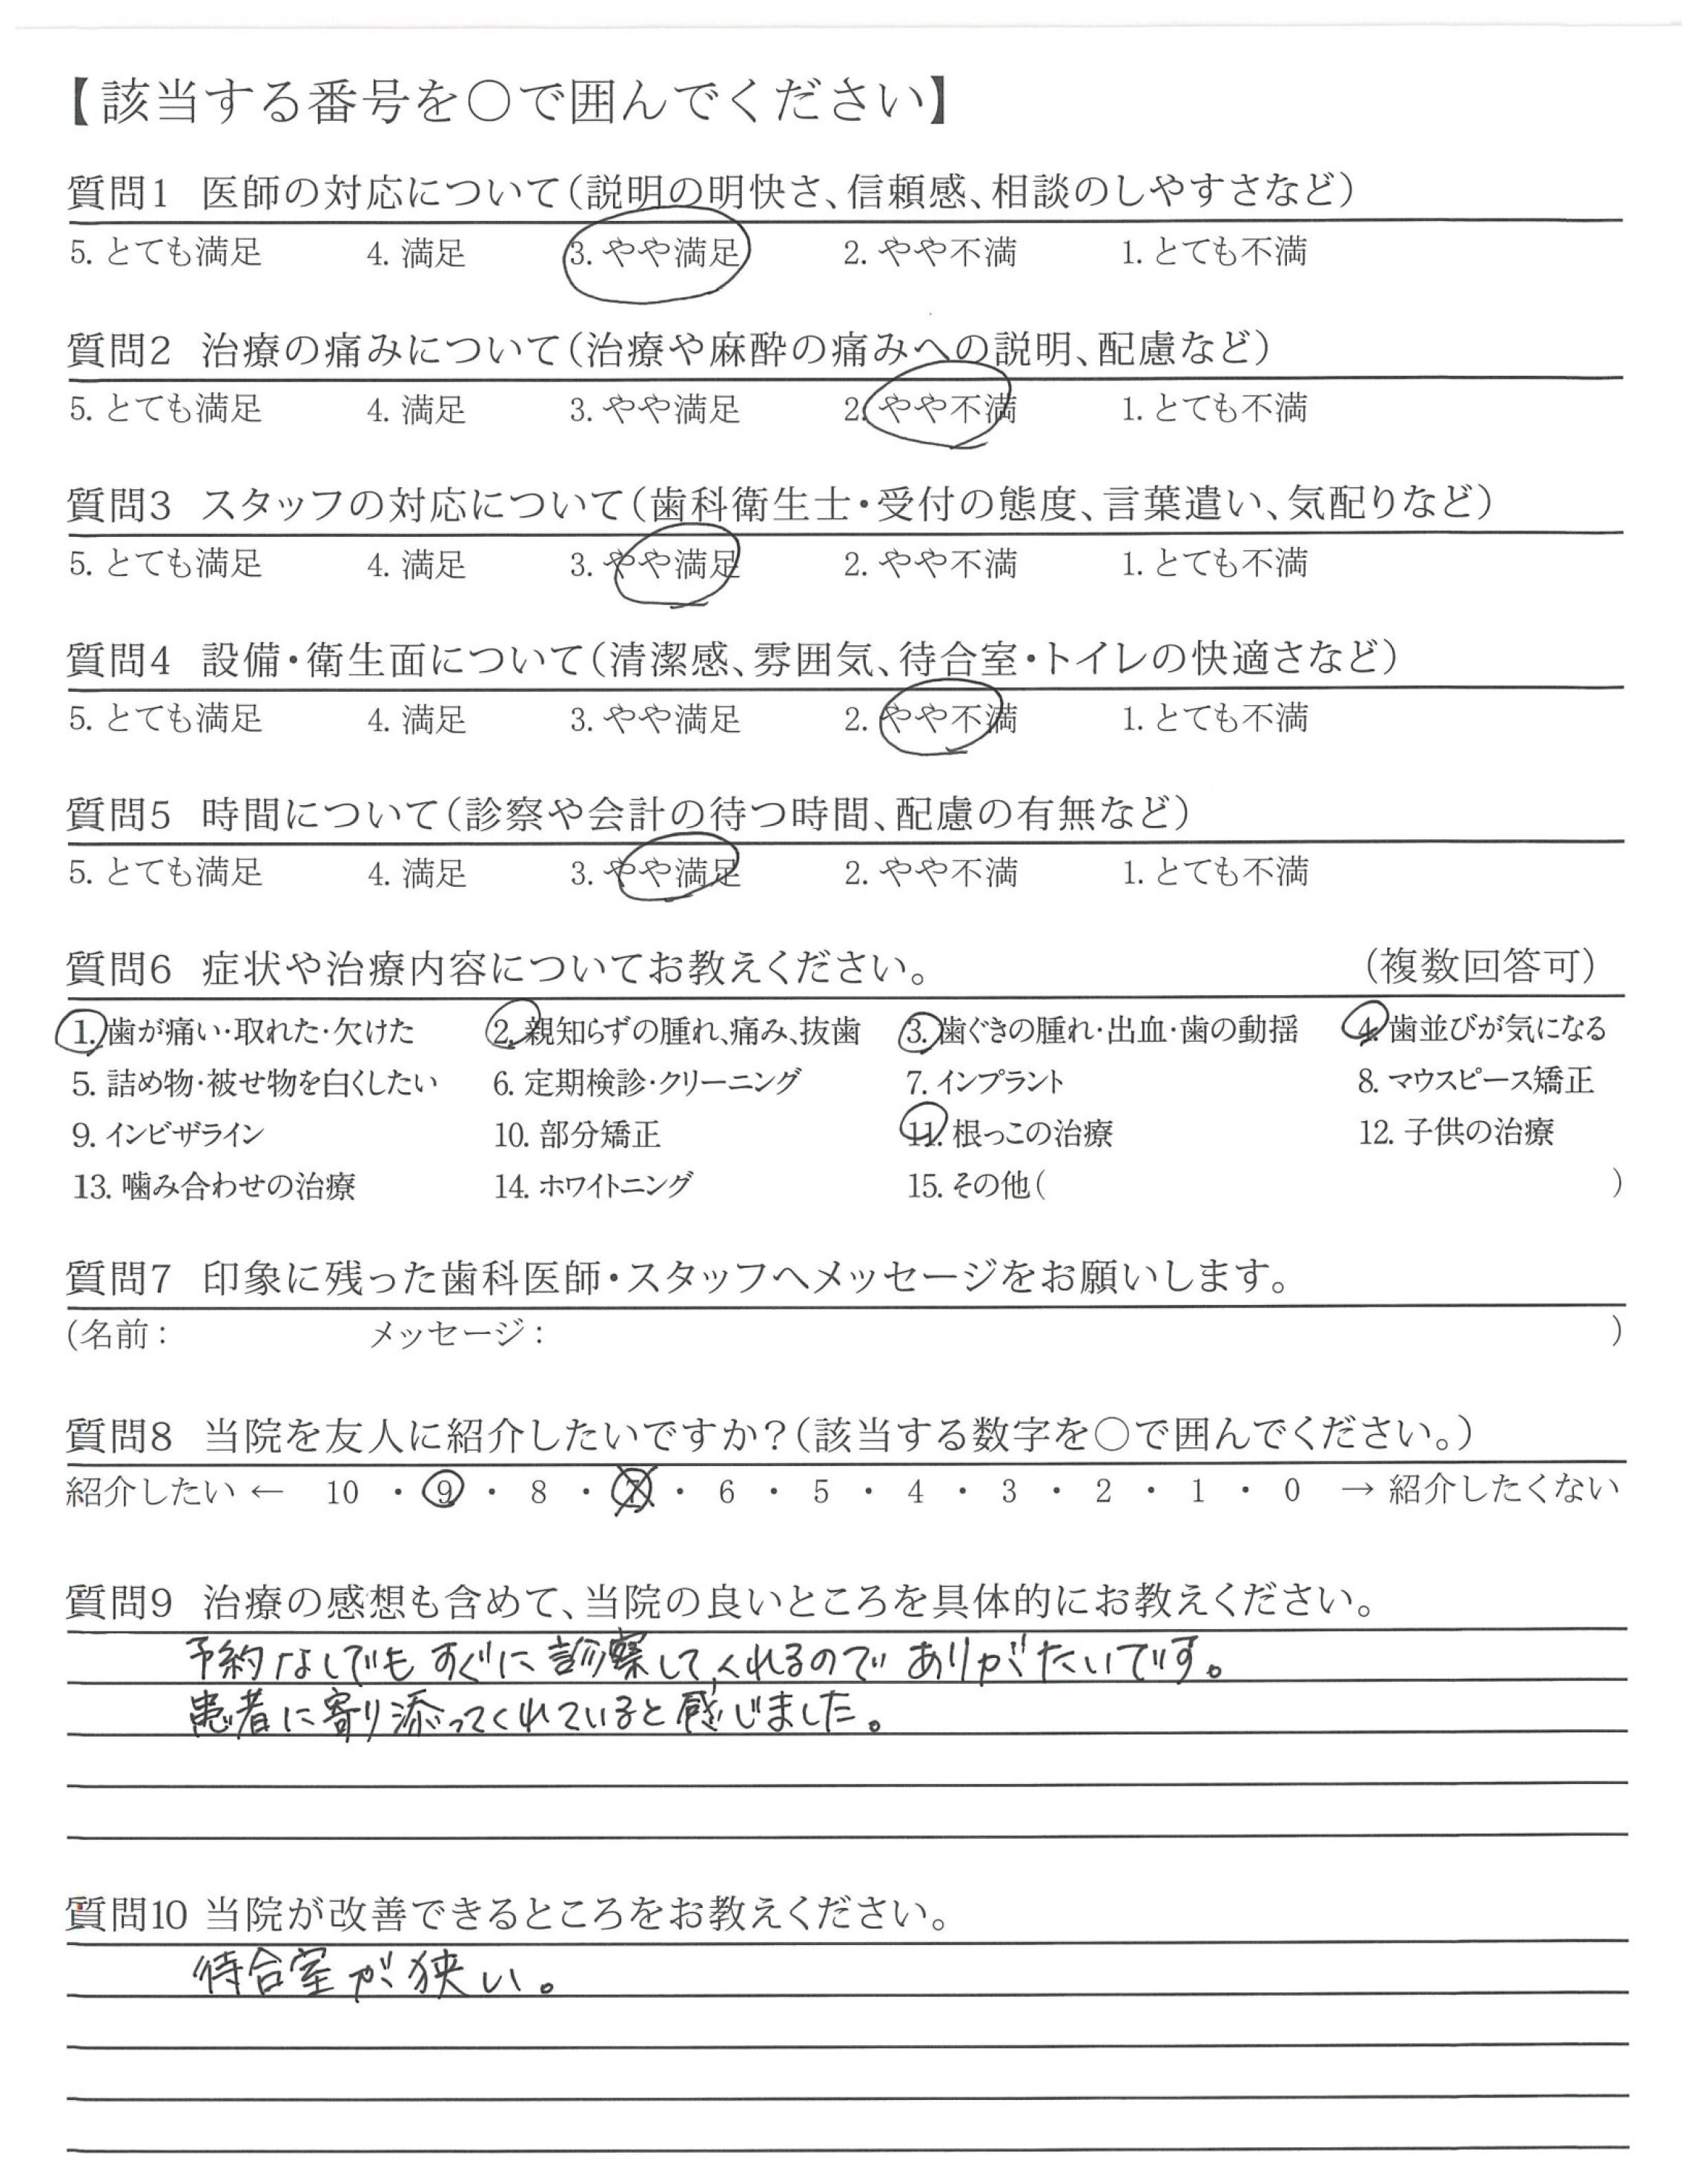 【該当する番号を○で囲んでください】
質問1 医師の対応について(説明の明快さ、信頼感、相談のしやすさなど)
5. とても満足 4. 満足 3. やや満足 2. やや不満 1. とても不満
質問2 治療の痛みについて(治療や麻酔の痛みへの説明、配慮など)
5. とても満足 4. 満足 3. やや満足 2. やや不満 1. とても不満
質問3 スタッフの対応について(歯科衛生士・受付の態度、言葉遣い、気配りなど)
5. とても満足 4. 満足 3. やや満足 2. やや不満 1. とても不満
質問4 設備・衛生面について(清潔感、雰囲気、待合室・トイレの快適さなど)
5. とても満足 4. 満足 3. やや満足 2. やや不満 1. とても不満
質問5 時間について(診察や会計の待つ時間、配慮の有無など)
5. とても満足 4. 満足 3. やや満足 2. やや不満 1. とても不満
質問6 症状や治療内容についてお教えください。 (複数回答可)
1. 歯が痛い・取れた・欠けた 2. 親知らずの腫れ、痛み、抜歯 3. 歯ぐきの腫れ・出血・歯の動揺 4. 歯並びが気になる
5. 詰め物・被せ物を白くしたい 6. 定期検診・クリーニング 7. インプラント 8. マウスピース矯正
9. インビザライン 10. 部分矯正 11. 根っこの治療 12. 子供の治療
13. 噛み合わせの治療 14. ホワイトニング 15. その他( )
質問7 印象に残った歯科医師・スタッフへメッセージをお願いします。
(名前: メッセージ: )
質問8 当院を友人に紹介したいですか?(該当する数字を○で囲んでください。)
紹介したい ← 10 ・ 9 ・ 8 ・ 7 ・ 6 ・ 5 ・ 4 ・ 3 ・ 2 ・ 1 ・ 0 → 紹介したくない
質問9 治療の感想も含めて、当院の良いところを具体的にお教えください。
予約なしでもすぐに診察してくれるのでありがたいです。
患者に寄り添ってくれていると感じました。
質問10 当院が改善できるところをお教えください。
待合室が狭い。